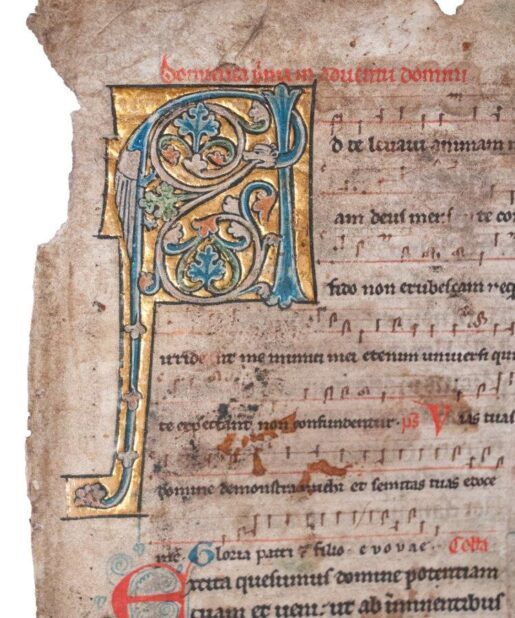 Dominica prima in adventu domini
A d te levavi animam m
am deus meus te con
fido non erubescam neq
irride nt me inimici mei etenim universi qui
te expectant non confundentur. ps Vias tuas
domine demonstra michi et semitas tuas edoce
me. Gloria patri & filio. e v o v a e. Colla
Excita quesumus domine potentiam
tuam et veni: ut ab imminentibus